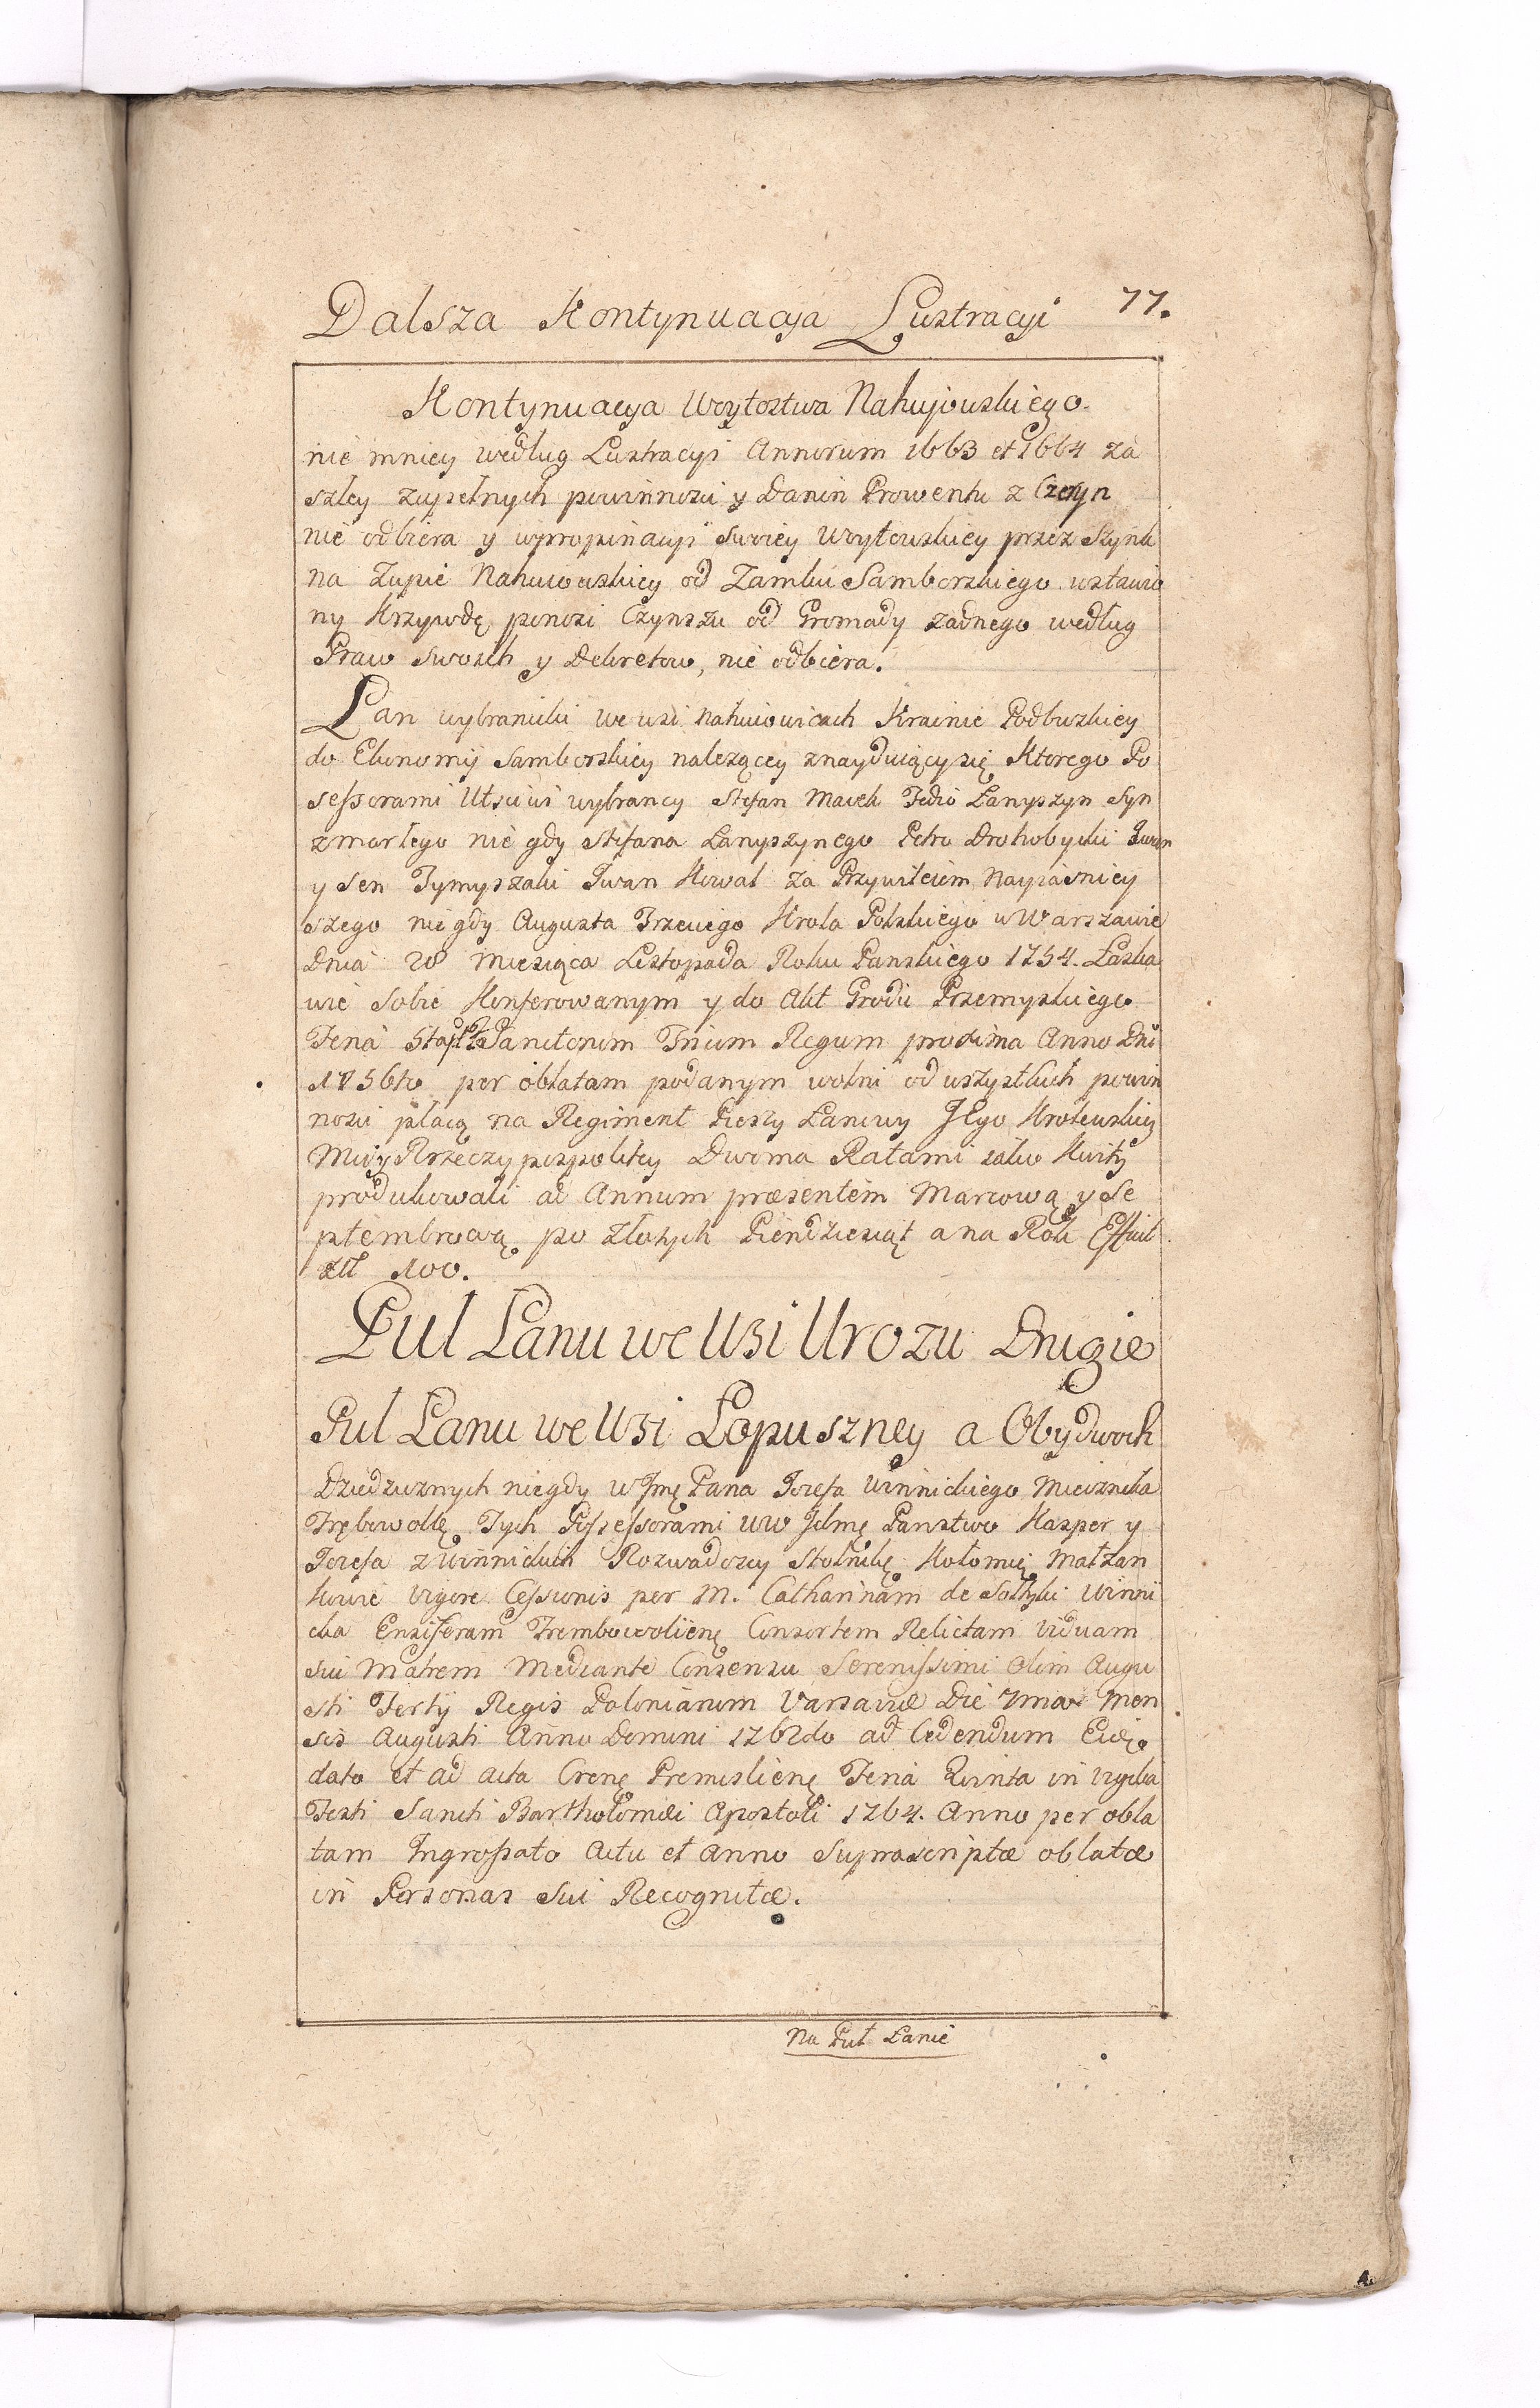 Dalsza Kontynuacya Lustracyi 77.
Kontynuacya Woytostwa Nahujowskiego
nie mniey według Lustracyi Annorum 1663 et 1664 za
szley zupełnych powinnosci y Danin Prowentu z Czeryn
nie odbiera y wpropinacyi swoiey Woytowskiey przez Szynk
na Zupie Nahuiowskiey od Zamku Samborskiego wstawio
ny Krzywdę ponosi Czynszu od Gromady zadnego według
Praw swoich y Dekretow, nie odbiera.
Łan wybraniecki we wsi Nahuiowicach Krainie Podbuskiey
do Ekonomij Samborskiey nalezącey znayduiący się Ktorego Po
sessorami Utsciwi wybrancy Stefan Macek Fedio Łanyszyn Syn
zmarłego nie gdy Stefana Łanyszynego Petro Drohobycki Iwan
y Sen Tymyszaki Iwan Kowal za Przywileiem Nayiasniey
szego nie gdy Augusta Trzeciego Krola Polskiego w Warszawie
Dnia Miesiąca Listopada Roku Panskiego 1754. Łaska
wie sobie Konferowanym y do Akt Grodu Przemyskiego
Feria Sanctorum Trium Regum proxima Anno Dni
1756to per oblatam podanym wolni od wszystkich powin
nosci płacą na Regiment Pieszy Łanowy JKgo Krolewskiey
Mci y Rzeczypospolitey Dwoma Ratami iako Kwity
produkowali ad Annum præsentem Marcową y Se
ptembrową po Złotych Piendziesiąt a na Rok Efficit
złł 100.
Puł Łanu we Wsi Urozu Drugie
Puł Łanu we Wsi Łopuszney a Obydwoch
Dziedzicznych niegdy W Jmę Pana Jozefa Winnickiego Miecznika
Trębowollę Tych Possessorami WW Ichmę Panstwo Kasper y
Jozefa z Winnickich Rozwadowscy Stolnikę Kołomię Małzan
kowie vigore Cessionis per M. Catharinam de Sołtyki Winni
cka Ensiferam Trembowolienę Consortem Relictam Viduam
sui Matrem Mediante Consensu Serenissimi olim Augu
sti Tertij Regis Poloniarum Varsaviæ Die 7ma Men
sis Augusti Anno Domini 1762do ad Cedendum Eidę
dato et ad acta Crenę Premislienę Feria Quinta in vigilia
Festi Sancti Bartholomæi Apostoli 1764. Anno per obla
tam Ingrossato Actu et Anno Suprascriptæ oblatæ
in Personas Sui Recognitæ.
Na Puł Łanie